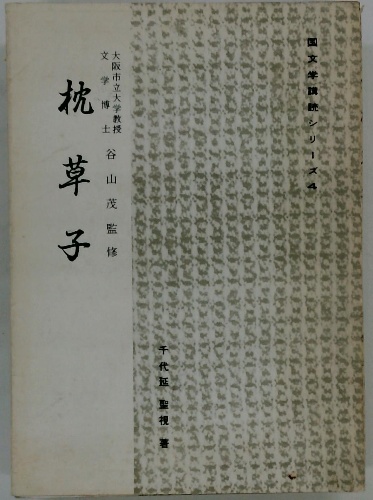 国文学講読シリーズ4
大阪市立大学教授
文学博士
谷山茂監修
枕草子
千代延聖視 著